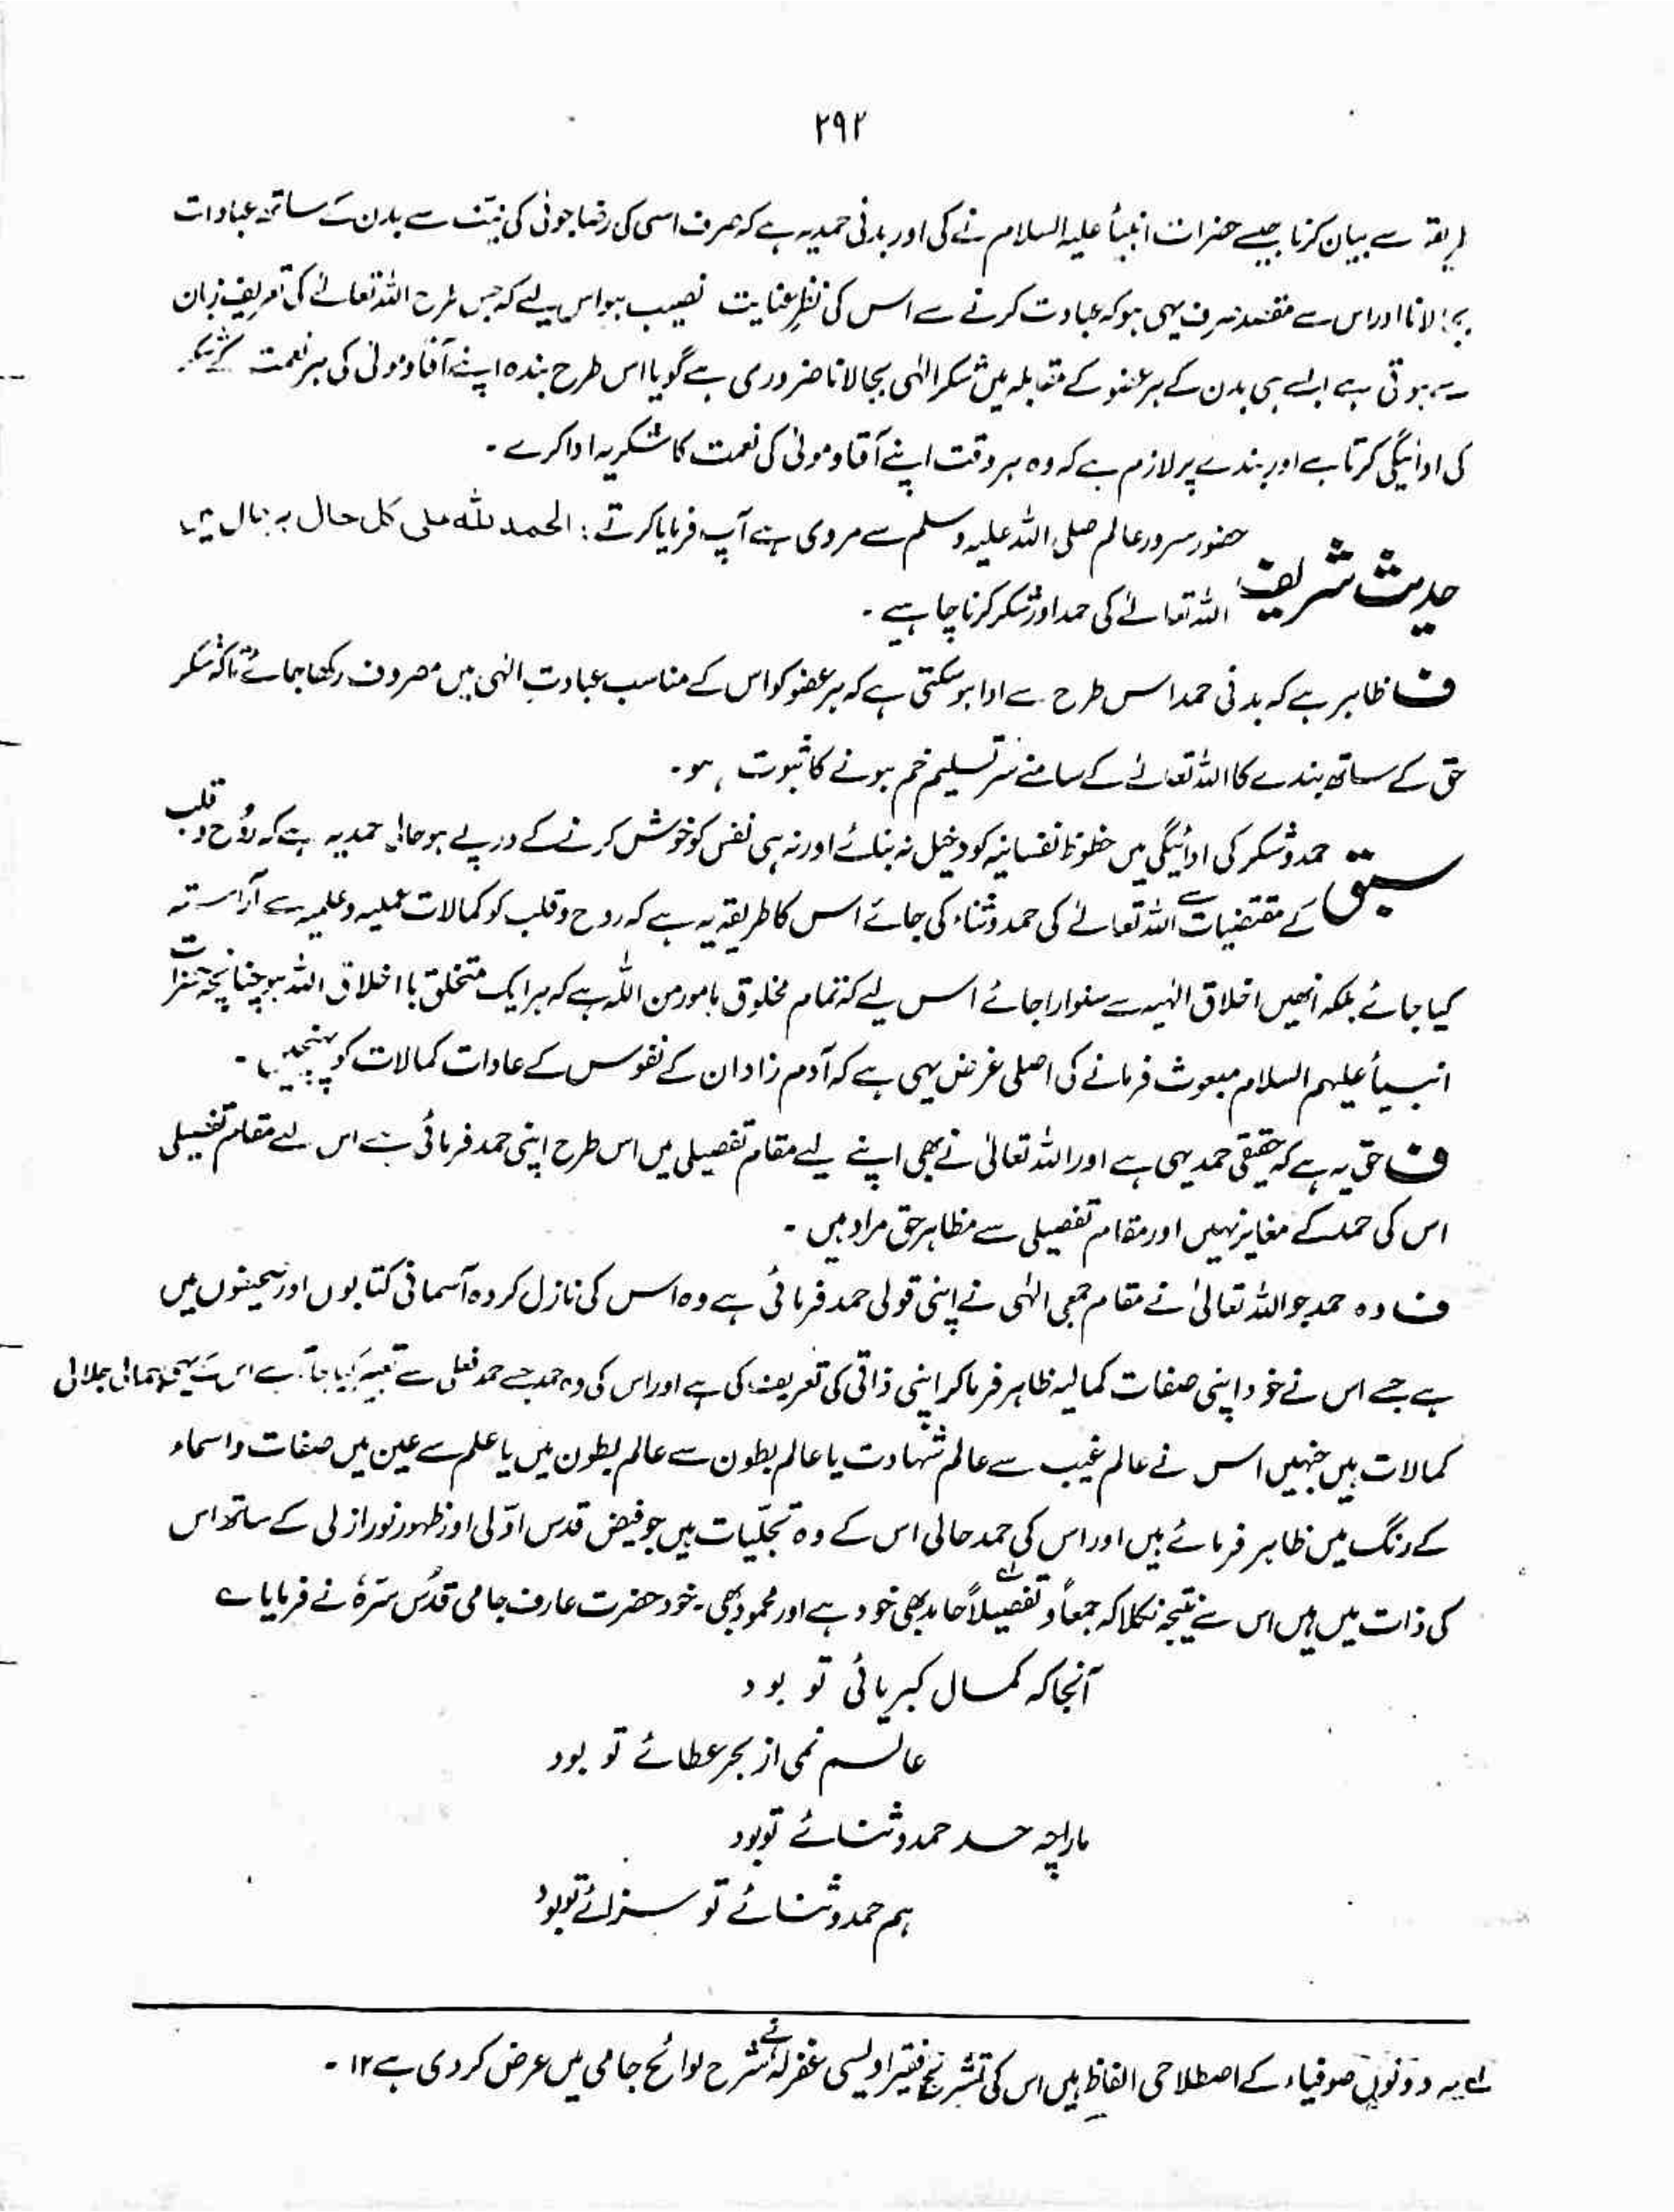 ۲۹۲
طریقہ سے بیان کرنا جیسے حضرات انبیأ علیہ السلام نے کی اور بدنی حمد یہ ہے کہ صرف اسی کی رضا جوئی کی نیّت سے بدن کے ساتھ عبادات
بجا لانا اور اس سے مقصد صرف یہی ہو کہ عبادت کرنے سے اس کی نظرِ عنایت نصیب ہو اس لیے کہ جس طرح اللہ تعالےٰ کی تعریف زبان
سے ہوتی ہے ایسے ہی بدن کے ہر عضو کے مقابلہ میں شکر الٰہی بجا لانا ضروری ہے گویا اس طرح بندہ اپنے آقا و مولیٰ کی ہر نعمت کے شکر
کی ادائیگی کرتا ہے اور بندے پر لازم ہے کہ وہ ہر وقت اپنے آقا و مولیٰ کی نعمت کا شکریہ ادا کرے ۔
حدیث شریف حضور سرور عالم صلی اللہ علیہ وسلم سے مروی ہے آپ فرمایا کرتے : الحمد للہ علی کل حال بہر حال میں
اللہ تعالےٰ کی حمد اور شکر کرنا چاہیے ۔
ف ظاہر ہے کہ بدنی حمد اس طرح سے ادا ہو سکتی ہے کہ ہر عضو کو اس کے مناسب عبادتِ الٰہی میں مصروف رکھا جائے تاکہ شکر
حق کے ساتھ بندے کا اللہ تعالےٰ کے سامنے سر تسلیم خم ہونے کا ثبوت ہو ۔
سبق حمد و شکر کی ادائیگی میں حظوظ نفسانیہ کو دخیل نہ بنائے اور نہ ہی نفس کو خوش کرنے کے درپے ہو حالی حمد یہ ہے کہ روح و قلب
کے مقتضیات سے اللہ تعالےٰ کی حمد و ثناء کی جائے اس کا طریقہ یہ ہے کہ روح و قلب کو کمالات عملیہ و علمیہ سے آراستہ
کیا جائے بلکہ انھیں اخلاق الٰہیہ سے سنوارا جائے اس لیے کہ تمام مخلوق بامور من اللہ ہے کہ ہر ایک متخلق با اخلاق اللہ ہو چنانچہ حضرات
انبیأ علیہم السلام مبعوث فرمانے کی اصلی غرض یہی ہے کہ آدم زادان کے نفوس کے عادات کمالات کو پہنچیں ۔
ف حق یہ ہے کہ حقیقی حمد یہی ہے اور اللہ تعالیٰ نے بھی اپنے لیے مقام تفصیلی میں اس طرح اپنی حمد فرمائی ہے اس لیے مقام تفصیلی
اس کی حمد کے مغایر نہیں اور مقام تفصیلی سے مظاہر حق مراد ہیں ۔
ف وہ حمد جو اللہ تعالیٰ نے مقام جمعی الٰہی نے اپنی قولی حمد فرمائی ہے وہ اس کی نازل کردہ آسمانی کتابوں اور صحیفوں میں
ہے جسے اس نے خود اپنی صفات کمالیہ ظاہر فرما کر اپنی ذاتی کی تعریف کی ہے اور اس کی وہ حمد جسے حمد فعلی سے تعبیر کیا جاتا ہے اس کے جمالی جلالی
کمالات ہیں جنہیں اس نے عالم غیب سے عالم شہادت یا عالم بطون سے عالم بطون میں یا علم سے عین میں صفات و اسماء
کے رنگ میں ظاہر فرمائے ہیں اور اس کی حمد حالی اس کے وہ تجلّیات ہیں جو فیض قدس اوّلی اور ظہور نور ازلی کے ساتھ اس
کی ذات میں ہیں اس سے نتیجہ نکلا کہ جمعاً و تفصیلاً لے حامد بھی خود ہے اور محمود بھی ۔ خود حضرت عارف جامی قدُس سّرہٗ نے فرمایا ے
آنجا کہ کمال کبریائی تو بود
عالم نمی از بحر عطائے تو بود
مارا چہ حد حمد و ثنائے تو بود
ہم حمد و ثنائے تو سزائے تو بود
لے یہ دونوں صوفیاء کے اصطلاحی الفاظ ہیں اس کی تشریح فقیر اویسی غفرلہٗ نے شرح لوائح جامی میں عرض کر دی ہے ۱۲ ۔